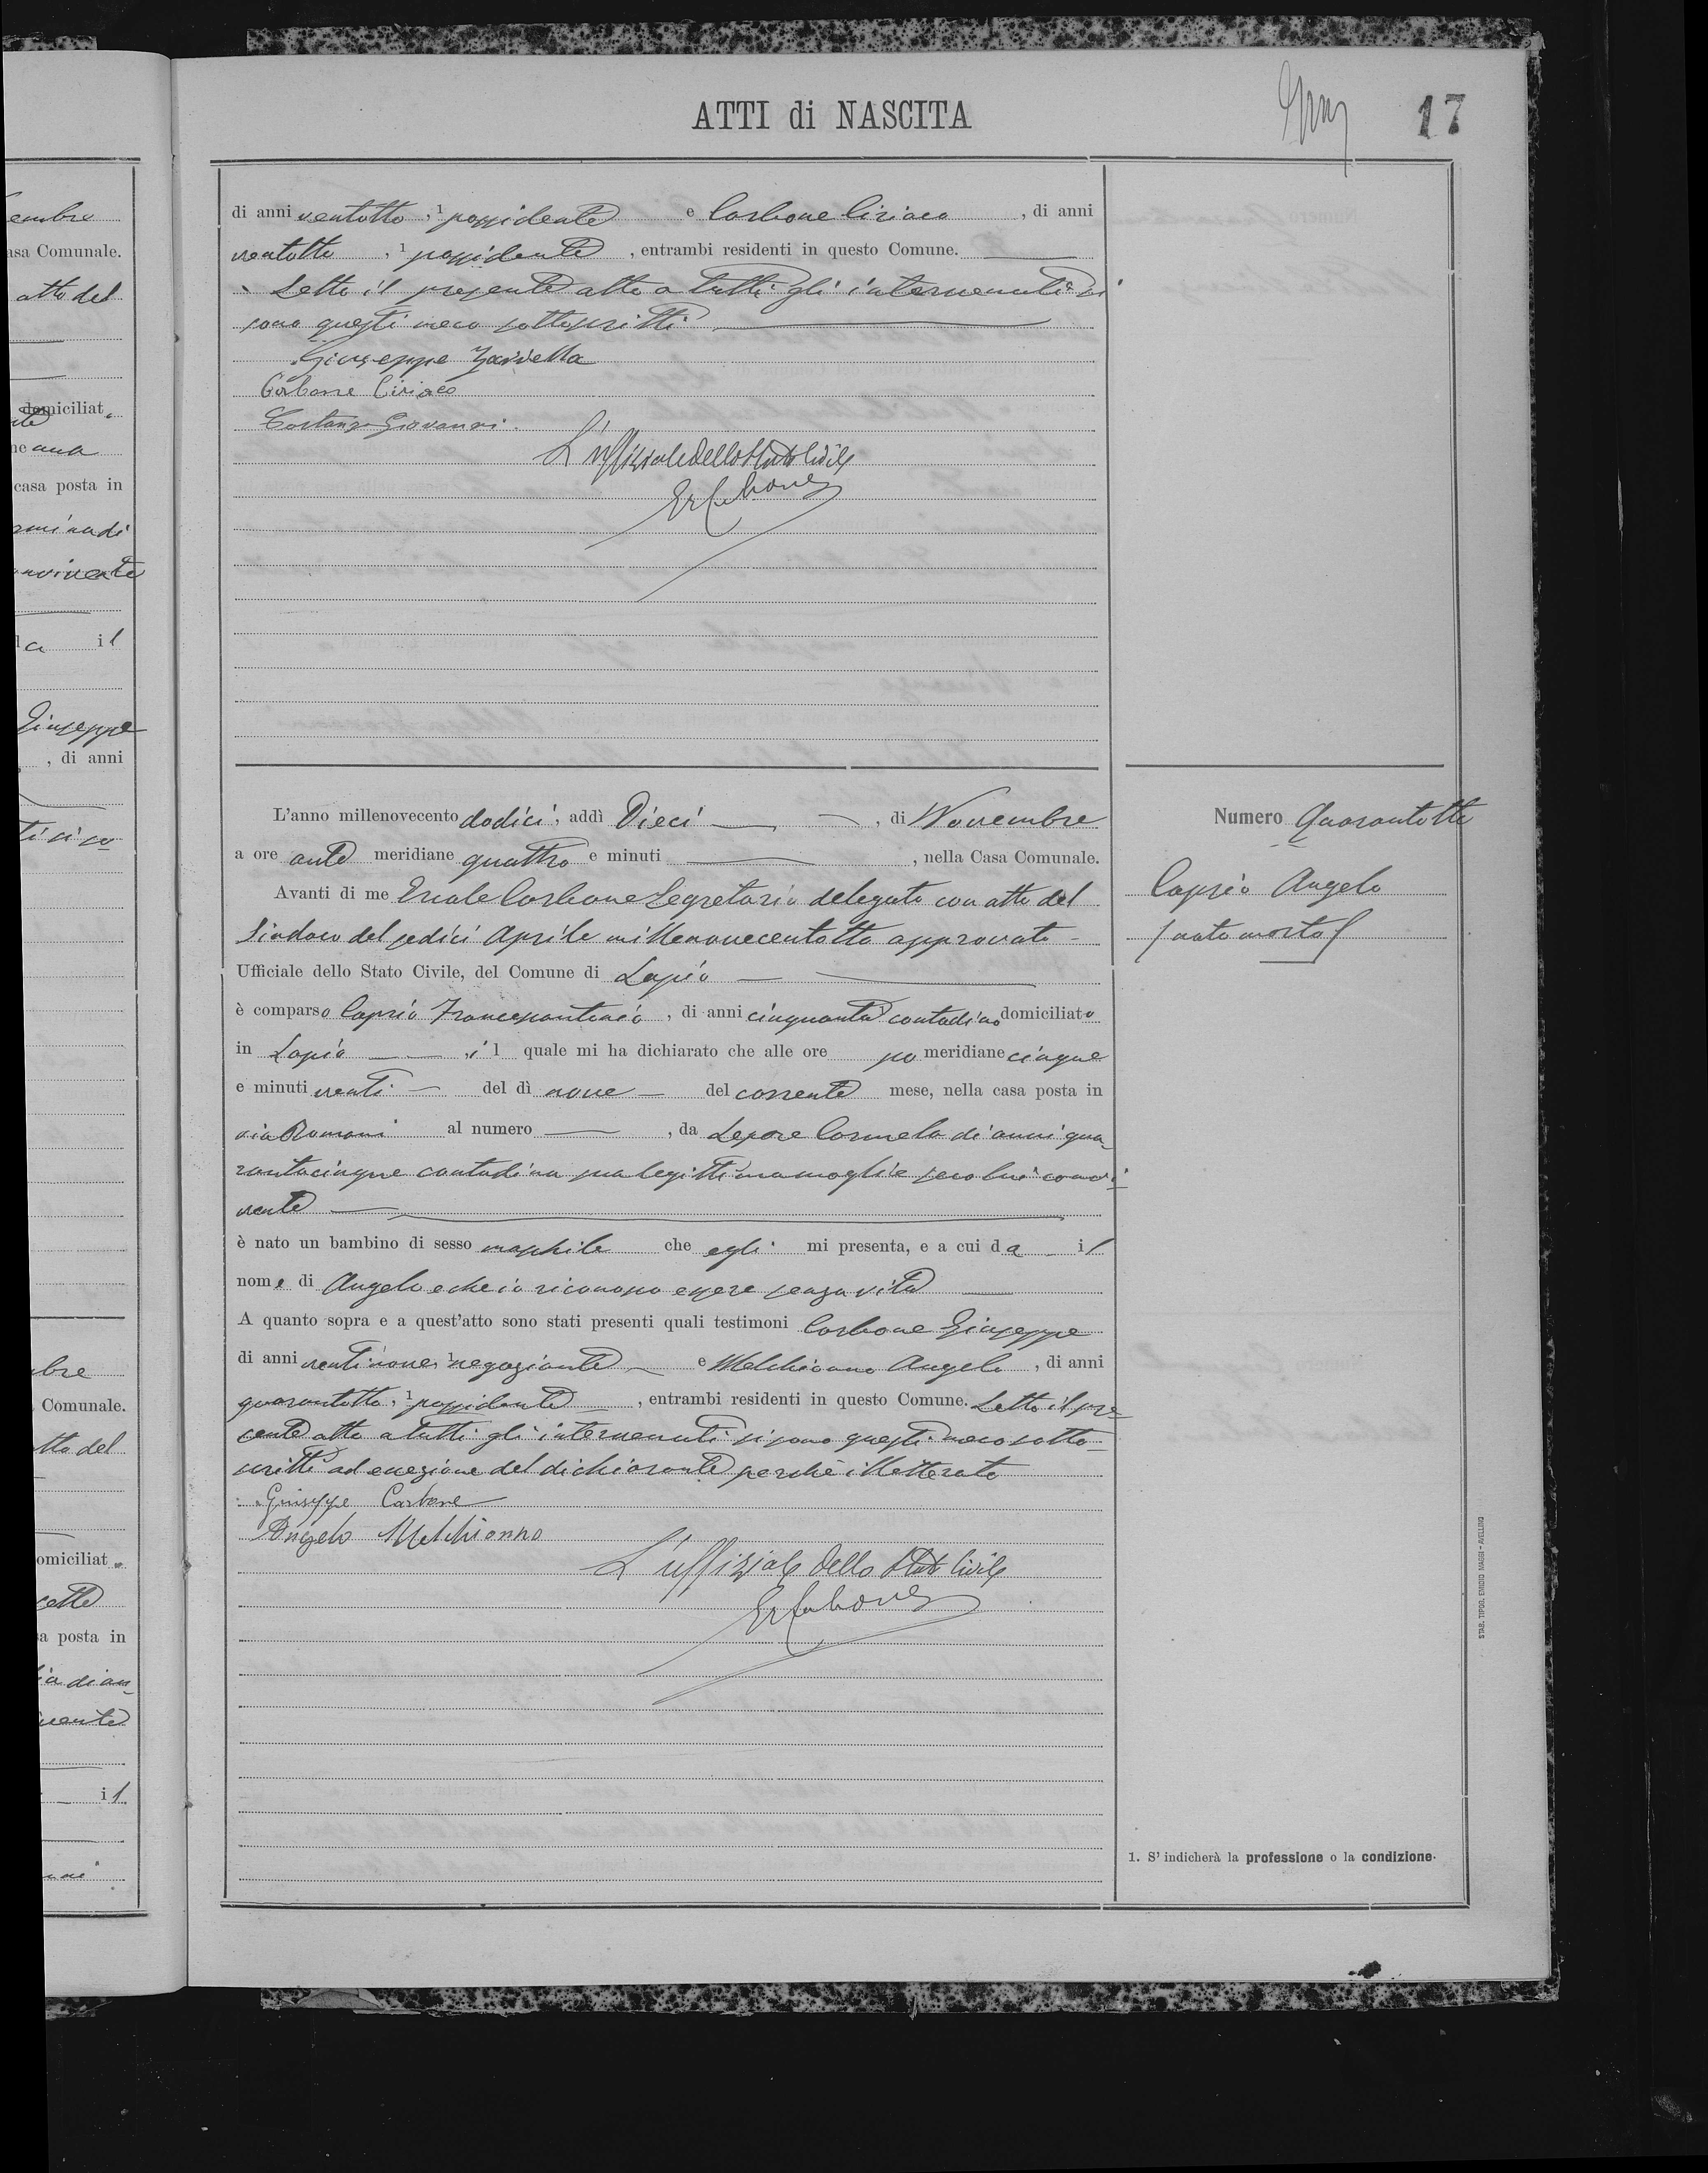 ATTI di NASCITA
17
di anni ventotto, 1 possidente e Carbone Ciriaco, di anni
ventotto, 1 possidente, entrambi residenti in questo Comune.
Letto il presente atto a tutti gli intervenuti si
sono questi meco sottoscritti
Giuseppe Zarrella
Carbone Ciriaco
Costanzo Giovanni.
L'uffiziale dello Stato Civile
Er Carbone
L'anno millenovecento dodici, addì Dieci, di Novembre
a ore ante meridiane quattro e minuti, nella Casa Comunale.
Avanti di me Ercole Carbone Segretario delegato con atto del
Sindaco del sedici Aprile millenovecentotto approvato
Ufficiale dello Stato Civile, del Comune di Lapio
è comparso Caprio Francescantonio, di anni cinquanta contadino domiciliato
in Lapio, il quale mi ha dichiarato che alle ore po meridiane cinque
e minuti venti del dì nove del corrente mese, nella casa posta in
via Romani al numero, da Lepore Carmela di anni qua-
rantacinque contadina sua legittima moglie seco lui convi-
vente
è nato un bambino di sesso maschile che egli mi presenta, e a cui da il
nome di Angelo e che io riconosco essere senza vita
A quanto sopra e a quest'atto sono stati presenti quali testimoni Carbone Giuseppe
di anni ventinove, 1 negoziante e Melchionno Angelo, di anni
quarantotto, 1 possidente, entrambi residenti in questo Comune. Letto il pre-
sente atto a tutti gli intervenuti si sono questi meco sotto-
scritti ad eccezione del dichiarante perchè illetterato
Giuseppe Carbone
Angelo Melchionno
L'uffiziale dello Stato Civile
Er Carbone
Numero Quarantotto
Caprio Angelo
(nato morto)
1. S'indicherà la professione o la condizione.
STAB. TIPOG. EMIDIO MAGGI - AVELLINO
embre
asa Comunale.
atto del
domiciliat
casa posta in
il
Giuseppe
, di anni
mbre
Comunale.
tto del
omiciliato
sa posta in
vente
il